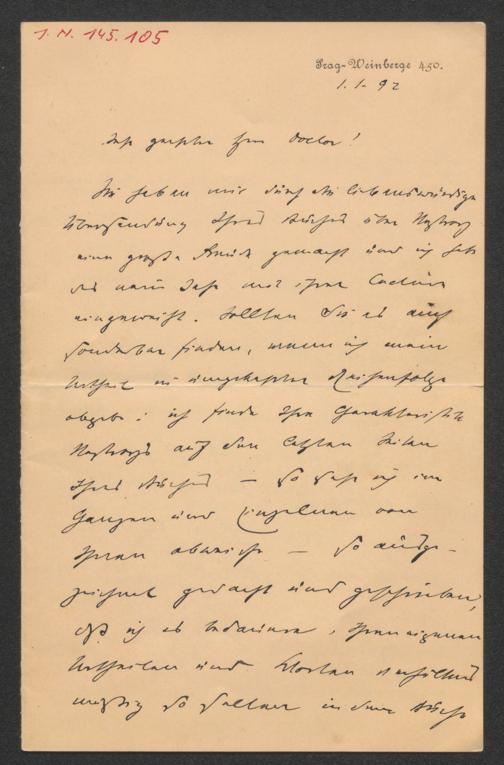 J. N. 145.105
Prag-Weinberge 450.
1.1.92
Sehr geehrter Herr Doctor!
Sie haben mir durch die liebenswürdige
Übersendung Ihres Buches über Nestroy
eine große Freude gemacht und ich habe
das neue Jahr mit Ihrer Lectüre
eingeweiht. Sollten Sie es auch
sonderbar finden, wenn ich mein
Urtheil in umgekehrter Reihenfolge
abgebe: ich finde Ihre Charakteristik
Nestroys auf den letzten Seiten
Ihres Buches – so sehr ich im
Ganzen und Einzelnen von
Ihnen abweiche – so ausge-
zeichnet gedacht und geschrieben,
daß ich es bedauere, Ihren eigenen
Urtheilen und Worten verhältnis
mäßig so selten in dem Buche